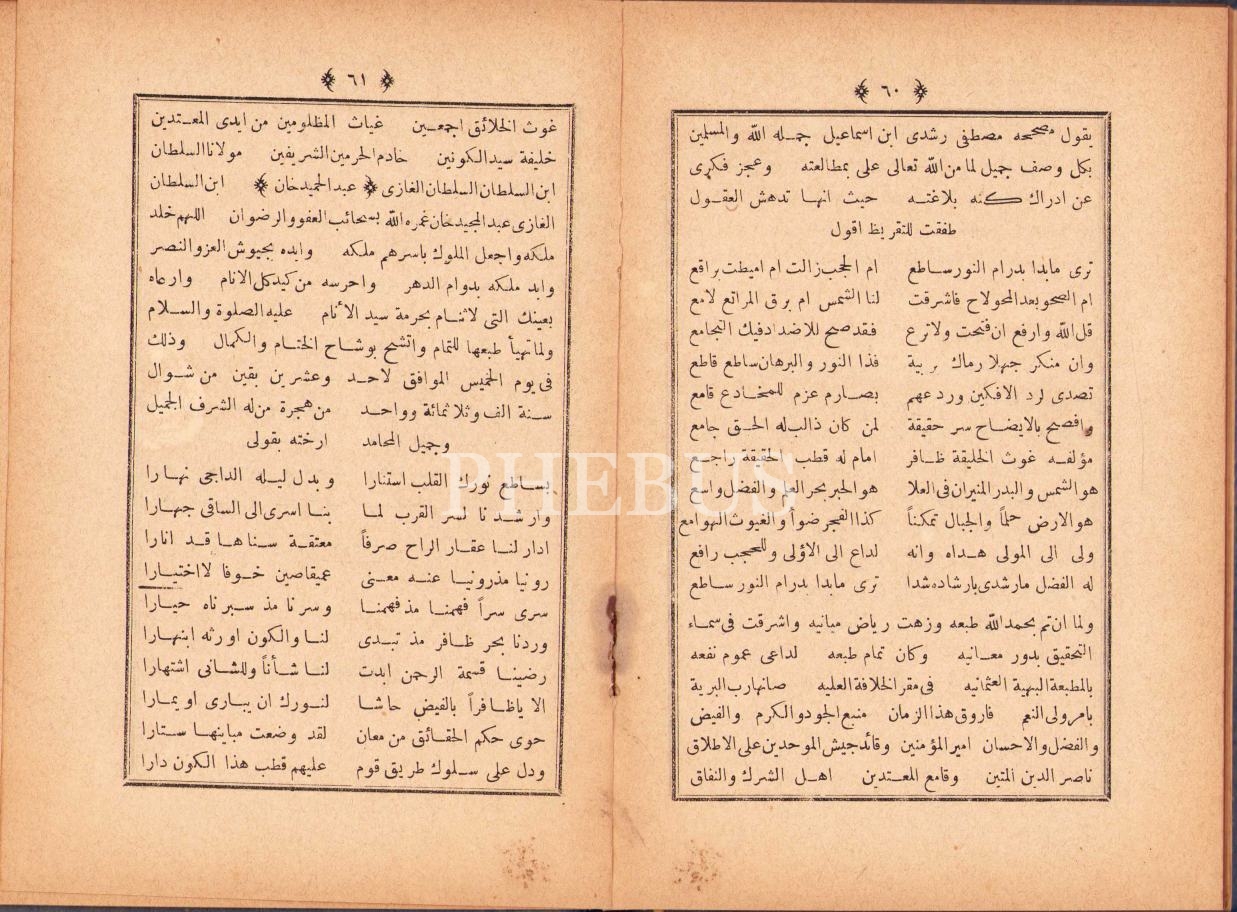 ﴿ ٦٠ ﴾
يقول مصححه مصطفى رشدى ابن اسماعيل جمله الله والمسلين
بكل وصف جميل لما من الله تعالى على بمطالعته وعجز فكرى
عن ادراك كنه بلاغته حيث انها تدهش العقول
طفقت للتقريظ اقول
ترى مابدا بدرام النور ساطع ام الحجب زالت ام اميطت براقع
ام الصحو بعد المحو لاح فاشرقت لنا الشمس ام برق المراتع لامع
قل الله وارفع ان فتحت ولا ترع فقد صح للاضداد فيك التجامع
وان منكر جهلا رماك بريبة فذا النور والبرهان ساطع قاطع
تصدى لرد الافكين وردعهم بصارم عزم للمخادع قامع
وافصح بالايضاح سر حقيقة لمن كان ذالب له الحق جامع
مؤلفه غوث الخليقة ظافر امام له قطب الحقيقة راجع
هو الشمس والبدر المنيران فى العلا هو الحبر بحر العلم والفضل واسع
هو الارض حلماً والجبال تمكناً كذا الفجر ضواً والغيوث الهوامع
ولى الى المولى هداه وانه لداع الى الاولى وللحجب رافع
له الفضل مارشدى بارشاده شدا ترى مابدا بدرام النور ساطع
ولما ان تم بحمد الله طبعه وزهت رياض مبانيه واشرقت فى سماء
التحقيق بدور معانيه وكان تمام طبعه لداعى عموم نفعه
بالمطبعة البهية العثمانيه فى مقر الخلافة العليه صانها رب البرية
بامر ولى النعم فاروق هذا الزمان منبع الجود والكرم والفيض
والفضل والاحسان امير المؤمنين وقائد جيش الموحدين على الاطلاق
ناصر الدين المتين وقامع المعتدين اهل الشرك والنفاق
﴿ ٦١ ﴾
غوث الخلائق اجمعين غياث المظلومين من ايدى المعتدين
خليفة سيد الكونين خادم الحرمين الشريفين مولانا السلطان
ابن السلطان السلطان الغازى ﴿ عبد الحميد خان ﴾ ابن السلطان
الغازى عبد المجيد خان غمره الله بسحائب العفو والرضوان اللهم خلد
ملكه واجعل الملوك باسرهم ملكه وايده بجيوش العز والنصر
وابد ملكه بدوام الدهر واحرسه من كيد كل الانام وارعاه
بعينك التى لاتنام بحرمة سيد الأنام عليه الصلوة والسلام
ولما تهيأ طبعها للتمام واتشح بوشاح الختام والكمال وذلك
فى يوم الخميس الموافق لاحد وعشرين بقين من شوال
سنة الف وثلاثمائة وواحد من هجرة من له الشرف الجميل
وجميل المحامد ارخته بقولى
بساطع نورك القلب استنارا وبدل ليله الداجى نهارا
وارشدنا لسر القرب لما بنا اسرى الى الساقى جهارا
ادار لنا عقار الراح صرفاً معتقة سناها قد انارا
روينا مذروينا عنه معنى عميقا صين خوفا لا اختيارا
سرى سراً فهمنا مذ فهمنا وسرنا مذ سبرناه حيارا
وردنا بحر ظافر مذ تبدى لنا والكون اورثه ابنهارا
رضينا قسمة الرحمن ابدت لنا شأناً وللشانى اشتهارا
الا ياظافراً بالفيض حاشا لنورك ان يبارى او يمارا
حوى حكم الحقائق من معان لقد وضعت مباينها ستارا
ودل على سلوك طريق قوم عليهم قطب هذا الكون دارا
PHEBUS